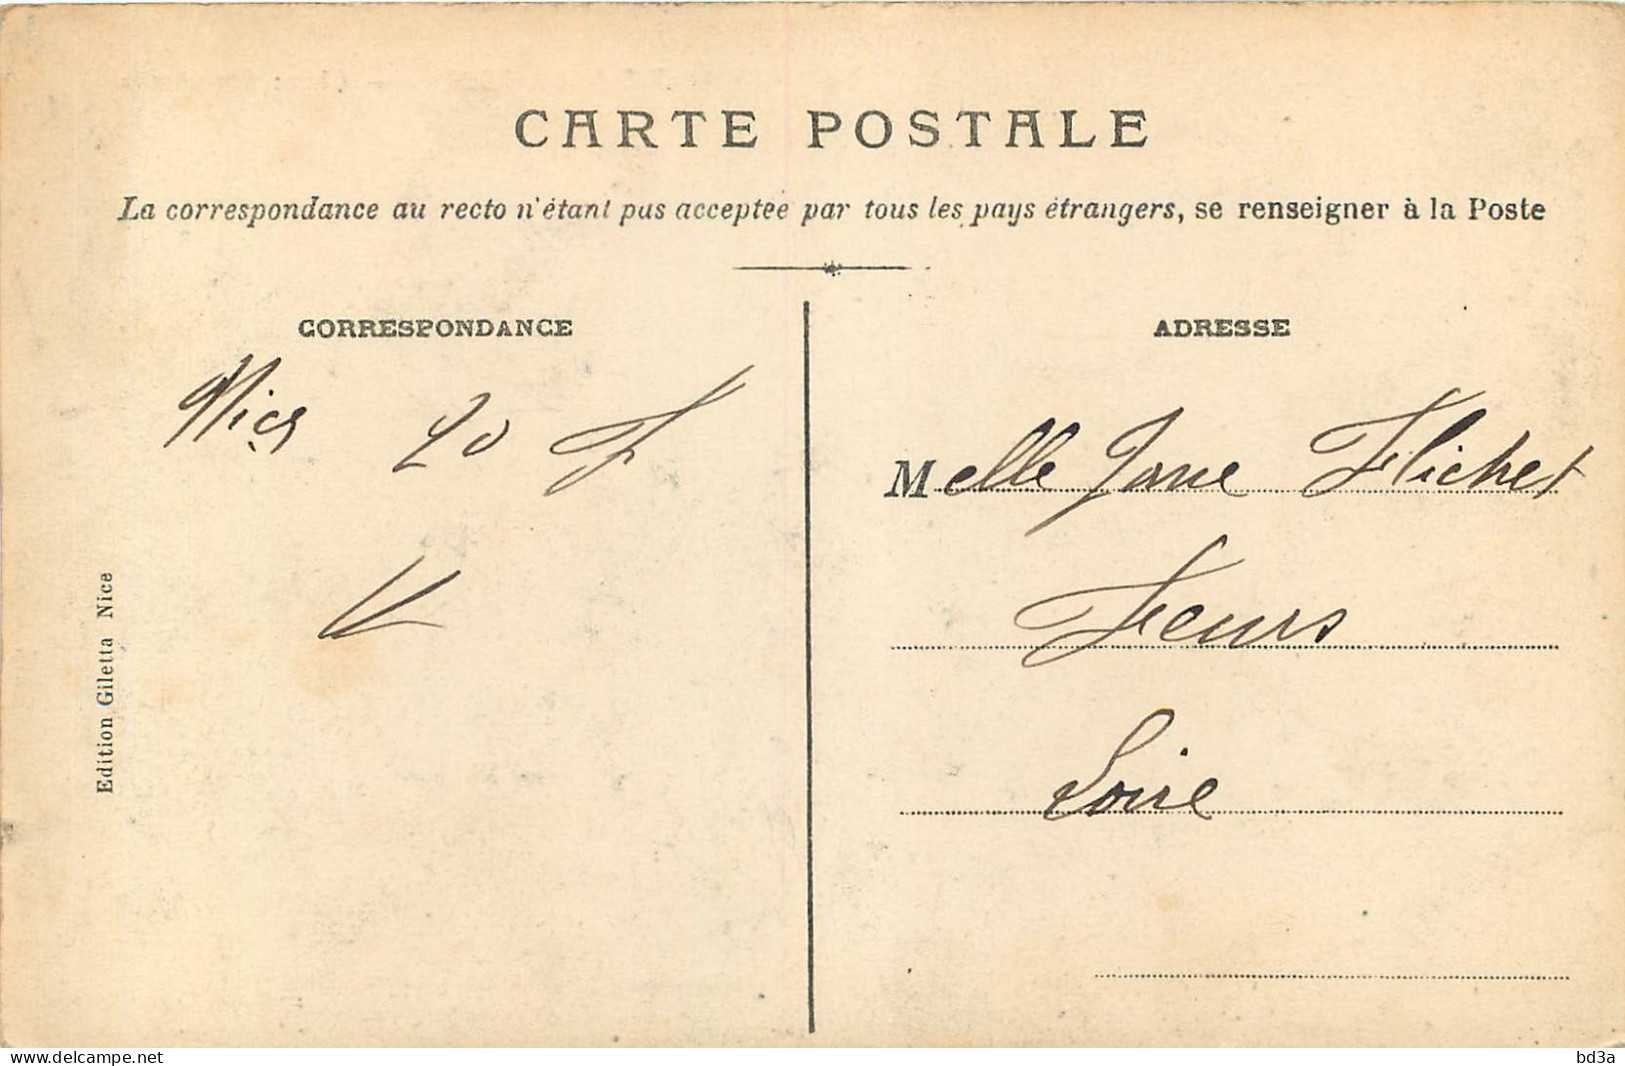 CARTE POSTALE
La correspondance au recto n'étant pas acceptée par tous les pays étrangers, se renseigner à la Poste
CORRESPONDANCE
Nice 20 F
V
ADRESSE
Melle Jane Flichet
Feurs
Loire
Edition Giletta Nice
www.delcampe.net
bd3a